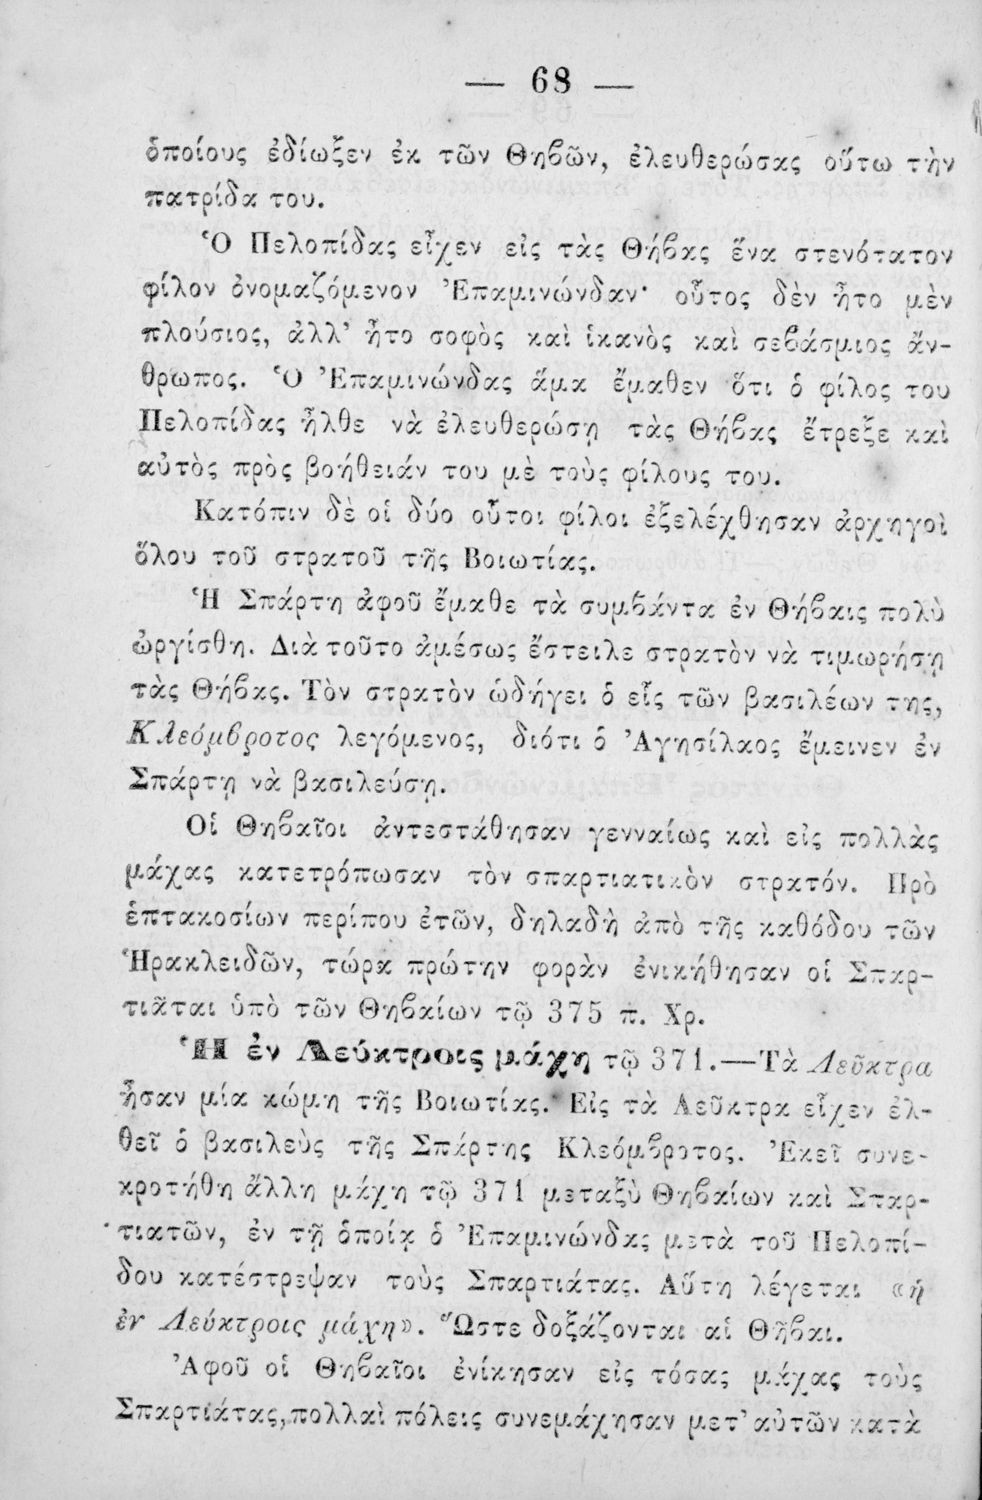 — 68 —
ὁποίους ἐδίωξεν ἐκ τῶν Θηβῶν, ἐλευθερώσας οὕτω τὴν
πατρίδα του.
Ὁ Πελοπίδας εἶχεν εἰς τὰς Θήβας ἕνα στενότατον
φίλον ὀνομαζόμενον Ἐπαμινώνδαν· οὗτος δὲν ἦτο μὲν
πλούσιος, ἀλλ' ἦτο σοφὸς καὶ ἱκανὸς καὶ σεβάσμιος ἄν-
θρωπος. Ὁ Ἐπαμινώνδας ἅμα ἔμαθεν ὅτι ὁ φίλος του
Πελοπίδας ἦλθε νὰ ἐλευθερώσῃ τὰς Θήβας ἔτρεξε καὶ
αὐτὸς πρὸς βοήθειάν του μὲ τοὺς φίλους του.
Κατόπιν δὲ οἱ δύο οὗτοι φίλοι ἐξελέχθησαν ἀρχηγοὶ
ὅλου τοῦ στρατοῦ τῆς Βοιωτίας.
Ἡ Σπάρτη ἀφοῦ ἔμαθε τὰ συμβάντα ἐν Θήβαις πολὺ
ὠργίσθη. Διὰ τοῦτο ἀμέσως ἔστειλε στρατὸν νὰ τιμωρήσῃ
τὰς Θήβας. Τὸν στρατὸν ὡδήγει ὁ εἷς τῶν βασιλέων της,
Κλεόμβροτος λεγόμενος, διότι ὁ Ἀγησίλαος ἔμεινεν ἐν
Σπάρτῃ νὰ βασιλεύσῃ.
Οἱ Θηβαῖοι ἀντεστάθησαν γενναίως καὶ εἰς πολλὰς
μάχας κατετρόπωσαν τὸν σπαρτιατικὸν στρατόν. Πρὸ
ἑπτακοσίων περίπου ἐτῶν, δηλαδὴ ἀπὸ τῆς καθόδου τῶν
Ἡρακλειδῶν, τώρα πρώτην φορὰν ἐνικήθησαν οἱ Σπαρ-
τιᾶται ὑπὸ τῶν Θηβαίων τῷ 375 π. Χρ.
Ἡ ἐν Λεύκτροις μάχη τῷ 371.—Τὰ Λεῦκτρα
ἦσαν μία κώμη τῆς Βοιωτίας. Εἰς τὰ Λεῦκτρα εἶχεν ἐλ-
θεῖ ὁ βασιλεὺς τῆς Σπάρτης Κλεόμβροτος. Ἐκεῖ συνε-
κροτήθη ἄλλη μάχη τῷ 371 μεταξὺ Θηβαίων καὶ Σπαρ-
τιατῶν, ἐν τῇ ὁποίᾳ ὁ Ἐπαμινώνδας μετὰ τοῦ Πελοπί-
δου κατέστρεψαν τοὺς Σπαρτιάτας. Αὕτη λέγεται «ἡ
ἐν Λεύκτροις μάχη». Ὥστε δοξάζονται αἱ Θῆβαι.
Ἀφοῦ οἱ Θηβαῖοι ἐνίκησαν εἰς τόσας μάχας τοὺς
Σπαρτιάτας, πολλαὶ πόλεις συνεμάχησαν μετ' αὐτῶν κατὰ